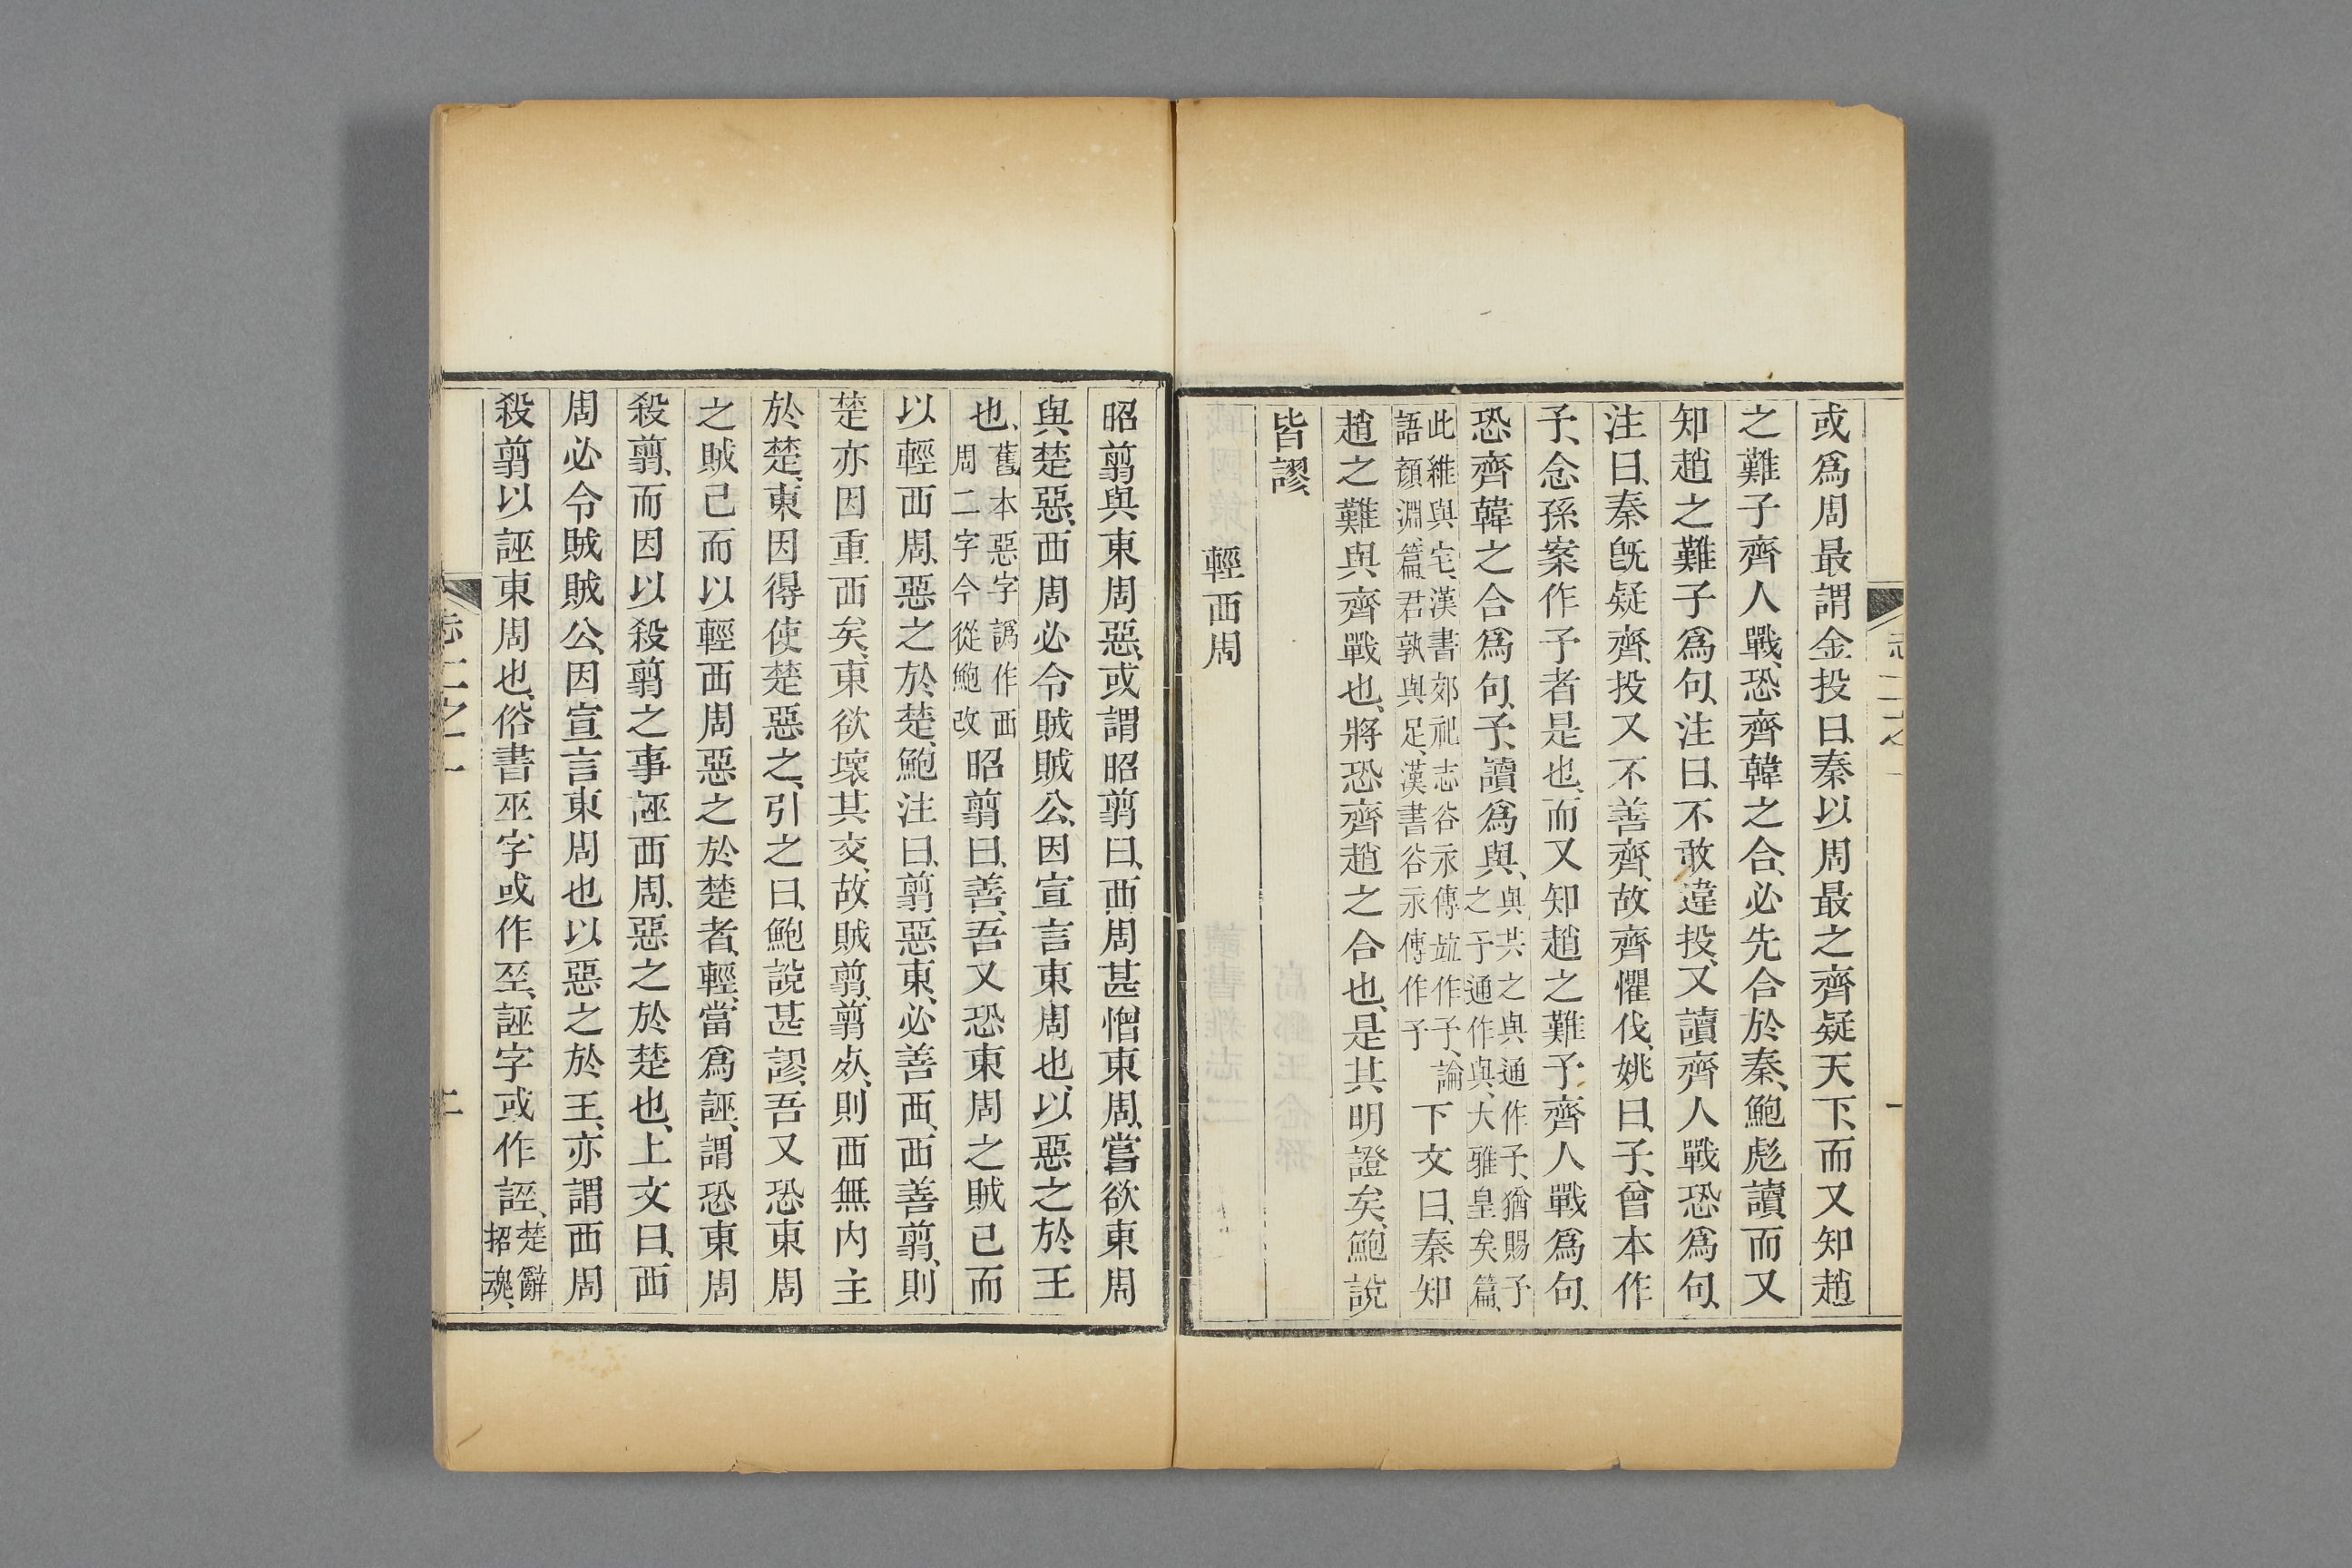 或爲周最謂金投曰、秦以周最之齊疑天下、而又知趙
之難子齊人戰、恐齊韓之合、必先合於秦、鮑彪讀、而又
知趙之難子爲句、注曰、不敢違投、又讀齊人戰恐爲句、
注曰、秦旣疑齊、投又不善齊、故齊懼伐、姚曰、子、曾本作
予、念孫案作予者是也、而又知趙之難予齊人戰爲句、
恐齊韓之合爲句、予、讀爲與、與共之與通作予、猶賜予之予通作與、大雅皇矣篇、
此維與宅、漢書郊祀志谷永傳竝作予、論語顏淵篇、君孰與足、漢書谷永傳作予下文曰、秦知
趙之難與齊戰也、將恐齊趙之合也、是其明證矣、鮑說
皆謬、
輕西周
昭翦與東周惡、或謂昭翦曰、西周甚憎東周、嘗欲東周
與楚惡、西周必令賊賊公、因宣言東周也、以惡之於王
也、舊本惡字譌作西周二字今從鮑改昭翦曰、善、吾又恐東周之賊己而
以輕西周、惡之於楚、鮑注曰、翦惡東、必善西、西善翦、則
楚亦因重西矣、東欲壞其交、故賊翦、翦死、則西無內主
於楚、東因得使楚惡之、引之曰、鮑說甚謬、吾又恐東周
之賊己而以輕西周惡之於楚者、輕、當爲誣、謂恐東周
殺翦、而因以殺翦之事誣西周、惡之於楚也、上文曰、西
周必令賊賊公、因宣言東周也以惡之於王、亦謂西周
殺翦以誣東周也、俗書巫字或作𢀩、誣字或作誙、楚辭招魂、
志二之一
二